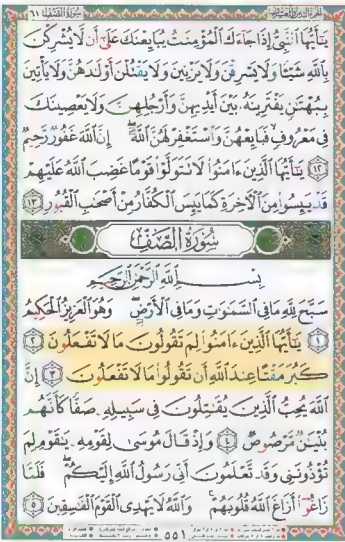 سُورَةُ الصَّف ٦١
يَٰٓأَيُّهَا ٱلنَّبِيُّ إِذَا جَآءَكَ ٱلْمُؤْمِنَٰتُ يُبَايِعْنَكَ عَلَىٰٓ أَن لَّا يُشْرِكْنَ
بِٱللَّهِ شَيْـًٔا وَلَا يَسْرِقْنَ وَلَا يَزْنِينَ وَلَا يَقْتُلْنَ أَوْلَٰدَهُنَّ وَلَا يَأْتِينَ
بِبُهْتَٰنٍ يَفْتَرِينَهُۥ بَيْنَ أَيْدِيهِنَّ وَأَرْجُلِهِنَّ وَلَا يَعْصِينَكَ
فِى مَعْرُوفٍ فَبَايِعْهُنَّ وَٱسْتَغْفِرْ لَهُنَّ ٱللَّهَ إِنَّ ٱللَّهَ غَفُورٌ رَّحِيمٌ
١٢ يَٰٓأَيُّهَا ٱلَّذِينَ ءَامَنُوا۟ لَا تَتَوَلَّوْا۟ قَوْمًا غَضِبَ ٱللَّهُ عَلَيْهِمْ
قَدْ يَئِسُوا۟ مِنَ ٱلْءَاخِرَةِ كَمَا يَئِسَ ٱلْكُفَّارُ مِنْ أَصْحَٰبِ ٱلْقُبُورِ ١٣
سُورَةُ الصَّفِّ
بِسْمِ ٱللَّهِ ٱلرَّحْمَٰنِ ٱلرَّحِيمِ
سَبَّحَ لِلَّهِ مَا فِى ٱلسَّمَٰوَٰتِ وَمَا فِى ٱلْأَرْضِ وَهُوَ ٱلْعَزِيزُ ٱلْحَكِيمُ
١ يَٰٓأَيُّهَا ٱلَّذِينَ ءَامَنُوا۟ لِمَ تَقُولُونَ مَا لَا تَفْعَلُونَ ٢
كَبُرَ مَقْتًا عِندَ ٱللَّهِ أَن تَقُولُوا۟ مَا لَا تَفْعَلُونَ ٣ إِنَّ
ٱللَّهَ يُحِبُّ ٱلَّذِينَ يُقَٰتِلُونَ فِى سَبِيلِهِۦ صَفًّا كَأَنَّهُم
بُنْيَٰنٌ مَّرْصُوصٌ ٤ وَإِذْ قَالَ مُوسَىٰ لِقَوْمِهِۦ يَٰقَوْمِ لِمَ
تُؤْذُونَنِى وَقَد تَّعْلَمُونَ أَنِّى رَسُولُ ٱللَّهِ إِلَيْكُمْ فَلَمَّا
زَاغُوٓا۟ أَزَاغَ ٱللَّهُ قُلُوبَهُمْ وَٱللَّهُ لَا يَهْدِى ٱلْقَوْمَ ٱلْفَٰسِقِينَ ٥
٥٥١